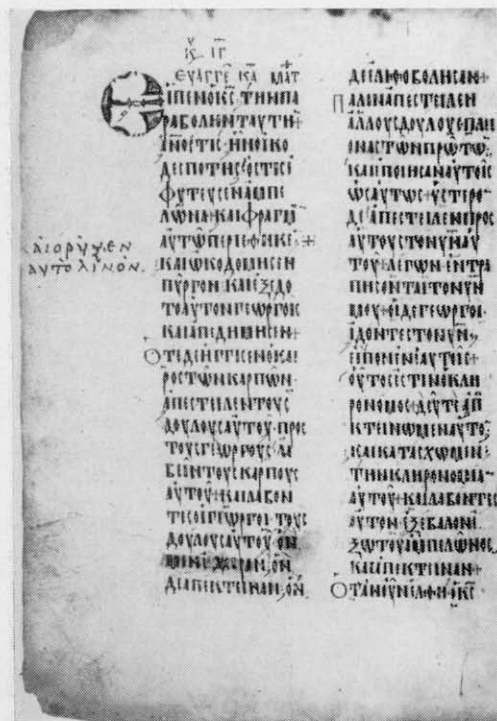 ΚΥ ΙΓ
ΕΥΑΓΓΕ ΚΑ ΜΑΤ
ΕΙΠΕΝΟΚϹ ΤΗΝΠΑ
ΡΑΒΟΛΗΝΤΑΥΤΗ
ΑΝΟϹΤΙϹ ΗΝΟΙΚΟ
ΔΕϹΠΟΤΗϹΟϹΤΙϹΕ
ΦΥΤΕΥϹΕΝΑΜΠΕ
ΛΩΝΑ·ΚΑΙΦΡΑΓΜ
ΑΥΤΩΠΕΡΙΕΘΗΚΕ+
ΚΑΙΟΡΥΞΕΝ
ΑΥΤΟΛΙΝΟΝ.
ΚΑΙΩΚΟΔΟΜΗϹΕΝ
ΠΥΡΓΟΝ·ΚΑΙΕΞΕΔΟ
ΤΟΑΥΤΟΝΓΕΩΡΓΟΙϹ
ΚΑΙΑΠΕΔΗΜΗϹΕΝ+
ΟΤΕΔΕΗΓΓΙϹΕΝΟΚΑΙ
ΡΟϹΤΩΝΚΑΡΠΩΝ·
ΑΠΕϹΤΕΙΛΕΝΤΟΥϹ
ΔΟΥΛΟΥϹΑΥΤΟΥ·ΠΡΟϹ
ΤΟΥϹΓΕΩΡΓΟΥϹ ΛΑ
ΒΕΙΝΤΟΥϹΚΑΡΠΟΥϹ
ΑΥΤΟΥ+ΚΑΙΛΑΒΟΝ
ΤΕϹΟΙΓΕΩΡΓΟΙ ΤΟΥϹ
ΔΟΥΛΟΥϹΑΥΤΟΥ·ΟΝ
ΟΝ
ΔΕΑΠΕΚΤΕΙΝΑΝ·ΟΝ
ΔΕΕΛΙΘΟΒΟΛΗϹΑΝ+
ΠΑΛΙΝΑΠΕϹΤΕΙΛΕΝ
ΑΛΛΟΥϹΔΟΥΛΟΥϹΠΛΕΙ
ΟΝΑϹΤΩΝΠΡΩΤΩ
ΚΑΙΕΠΟΙΗϹΑΝΑΥΤΟΙϹ
ΩϹΑΥΤΩϹ+ΥϹΤΕΡΟ
ΔΕΑΠΕϹΤΕΙΛΕΝΠΡΟϹ
ΑΥΤΟΥϹΤΟΝΥΝΑΥ
ΤΟΥ·ΛΕΓΩΝ·ΕΝΤΡΑ
ΠΗϹΟΝΤΑΙΤΟΝΥΝ
ΜΟΥ+ΟΙΔΕΓΕΩΡΓΟΙ·
ΙΔΟΝΤΕϹΤΟΝΥΝ
ΕΙΠΟΝΕΝΕΑΥΤΟΙϹ+
ΟΥΤΟϹΕϹΤΙΝΟΚΛΗ
ΡΟΝΟΜΟϹ+ΔΕΥΤΕΑΠ
ΚΤΕΙΝΩΜΕΝΑΥΤΟ·
ΚΑΙΚΑΤΑϹΧΩΜΕΝ
ΤΗΝΚΛΗΡΟΝΟΜΙΑ
ΑΥΤΟΥ+ΚΑΙΛΑΒΟΝΤΕϹ
ΑΥΤΟΝ·ΕΞΕΒΑΛΟΝΕ
ΞΩΤΟΥΑΜΠΕΛΩΝΟϹ
ΚΑΙΑΠΕΚΤΕΙΝΑΝ+
ΟΤΑΝΟΥΝΕΛΘΗΟΚϹ